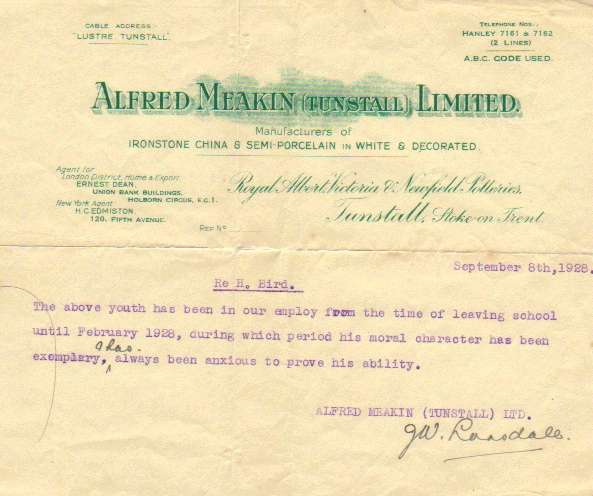 CABLE ADDRESS:-
"LUSTRE, TUNSTALL".
TELEPHONE NOS.:-
HANLEY 7161 & 7162
(2 LINES)
A.B.C. CODE USED.
ALFRED MEAKIN (TUNSTALL) LIMITED.
Manufacturers of
IRONSTONE CHINA & SEMI-PORCELAIN IN WHITE & DECORATED.
Agent for
London District, Home & Export
ERNEST DEAN,
UNION BANK BUILDINGS,
HOLBORN CIRCUS, E.C.1.
New York Agent
H.C. EDMISTON,
120, FIFTH AVENUE.
Royal Albert, Victoria & Newfield Potteries,
Tunstall, Stoke-on-Trent
REF No
September 8th, 1928.
Re H. Bird.
The above youth has been in our employ from the time of leaving school
until February 1928, during which period his moral character has been
& has
exemplary, always been anxious to prove his ability.
ALFRED MEAKIN (TUNSTALL) LTD.
JW. Lonsdale.